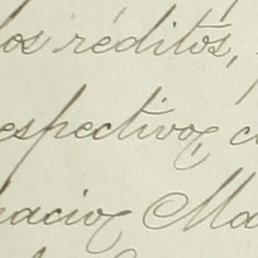 los réditos,
espectivos, c
nacios Ma